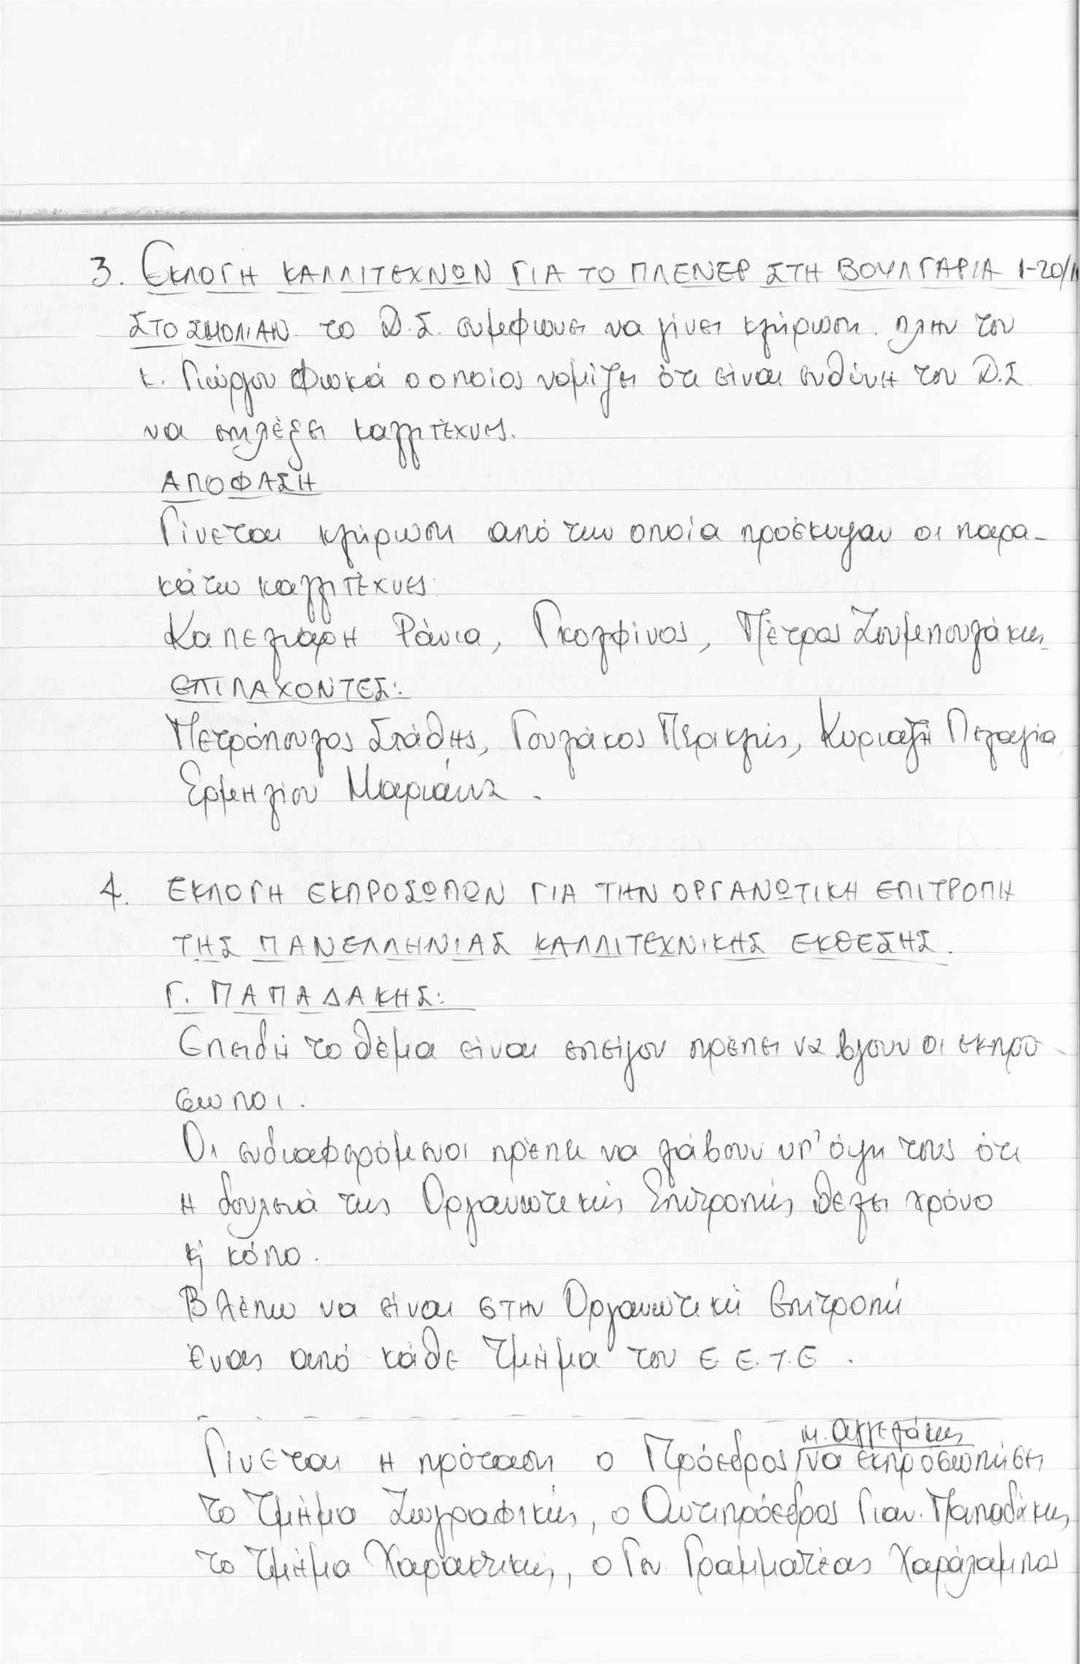 3. ΕΚΛΟΓΗ ΚΑΛΛΙΤΕΧΝΩΝ ΓΙΑ ΤΟ ΠΛΕΝΕΡ ΣΤΗ ΒΟΥΛΓΑΡΙΑ 1-20/
ΣΤΟ ΣΜΟΛΙΑΝ. το Δ.Σ. συμφωνεί να γίνει κλήρωση. πλην του
κ. Γιώργου Φωκά ο οποίος νομίζει ότι είναι ευθύνη του Δ.Σ
να επιλέξει καλλιτέχνες.
ΑΠΟΦΑΣΗ
Γίνεται κλήρωση από την οποία προέκυψαν οι παρα-
κάτω καλλιτέχνες:
Καπελιάρη Ράνια, Γκολφίνος, Πέτρος Ζουμπουλάκης
ΕΠΙΛΑΧΟΝΤΕΣ:
Πετρόπουλος Στάθης, Γουλάκος Περικλής, Κυριαζή Πελαγία
Ερμηλίου Μαριάννα.
4. ΕΚΛΟΓΗ ΕΚΠΡΟΣΩΠΩΝ ΓΙΑ ΤΗΝ ΟΡΓΑΝΩΤΙΚΗ ΕΠΙΤΡΟΠΗ
ΤΗΣ ΠΑΝΕΛΛΗΝΙΑΣ ΚΑΛΛΙΤΕΧΝΙΚΗΣ ΕΚΘΕΣΗΣ.
Γ. ΠΑΠΑΔΑΚΗΣ:
Επειδή το θέμα είναι επείγον πρέπει να βγουν οι εκπρό-
σωποι.
Οι ενδιαφερόμενοι πρέπει να λάβουν υπ' όψη τους ότι
η δουλειά της Οργανωτικής Επιτροπής θέλει χρόνο
κι κόπο.
Βλέπω να είναι στην Οργανωτική Επιτροπή
ένας από κάθε τμήμα του Ε.Ε.Τ.Ε.
Μ. Αγγελάκης
Γίνεται η πρόταση ο Πρόεδρος / να εκπροσωπήσει
το Τμήμα Ζωγραφικής, ο Αντιπρόεδρος Γιαν. Παπαδάκης
το τμήμα Χαρακτικής, ο Γεν. Γραμματέας Χαράλαμπος